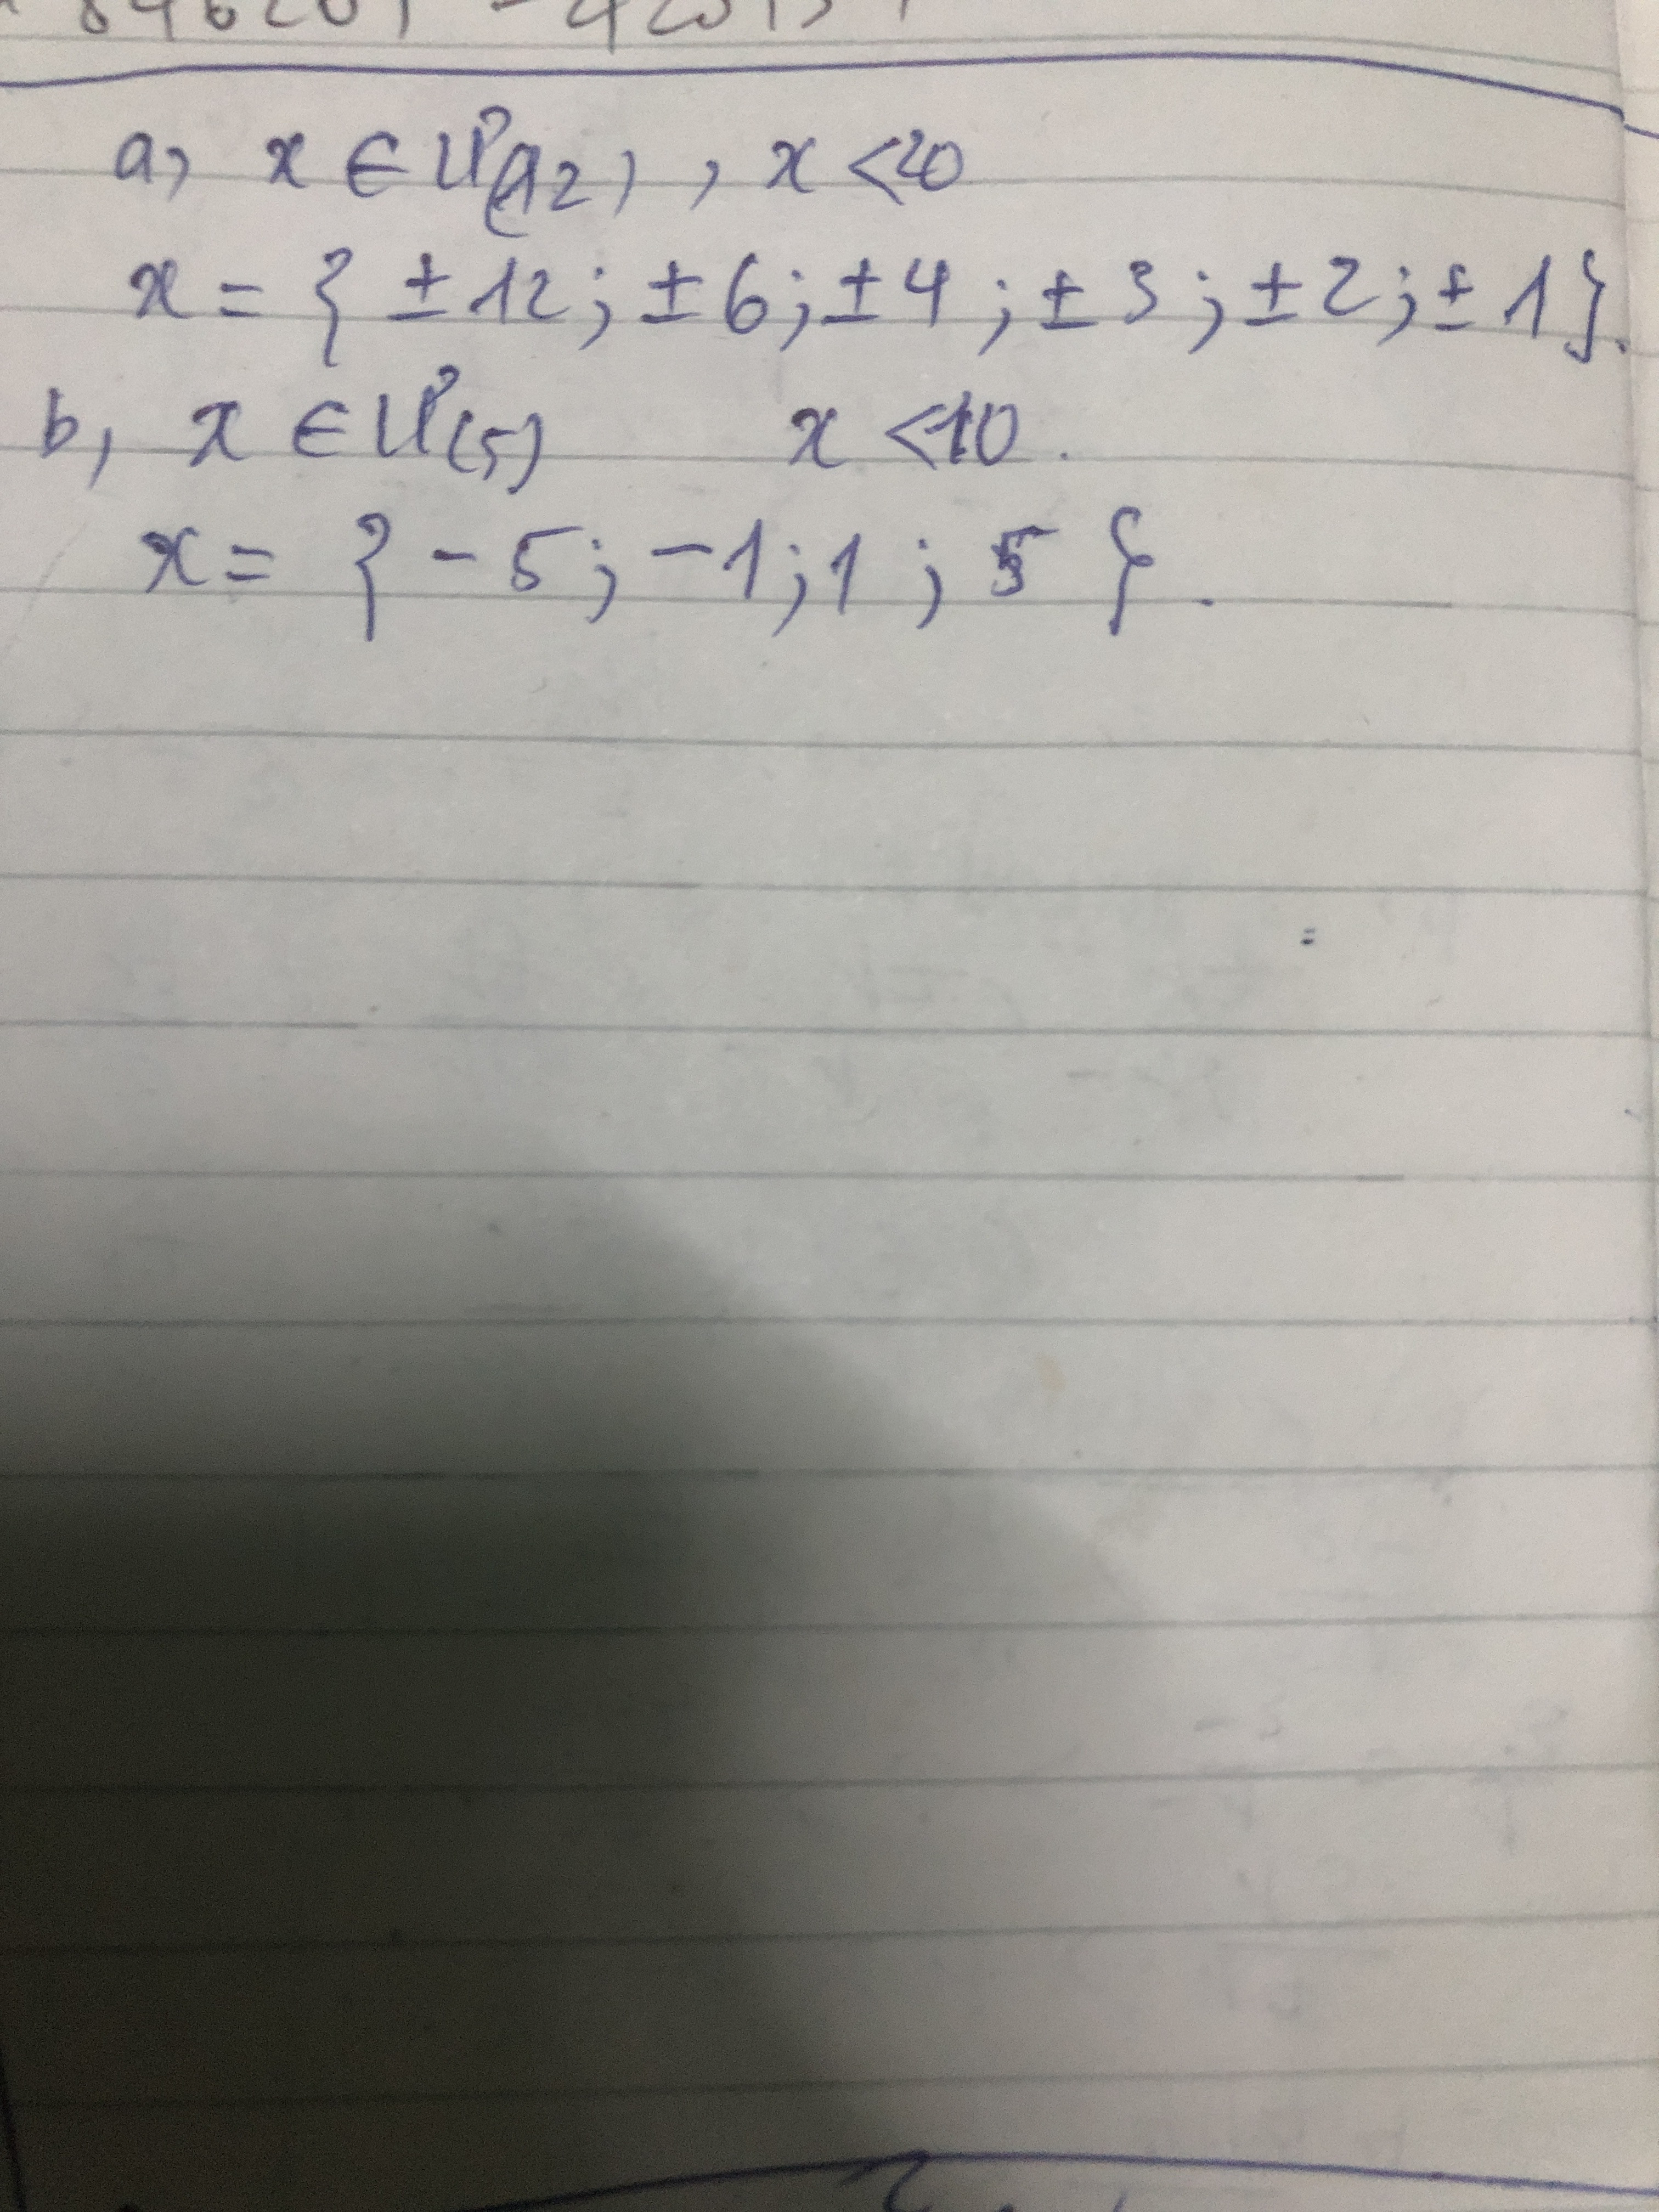 a, x ∈ Ư(12), x < 20
x = { ± 12; ± 6; ± 4; ± 3; ± 2; ± 1}.
b, x ∈ Ư(5) x < 10.
x = { - 5; - 1; 1; 5 }.